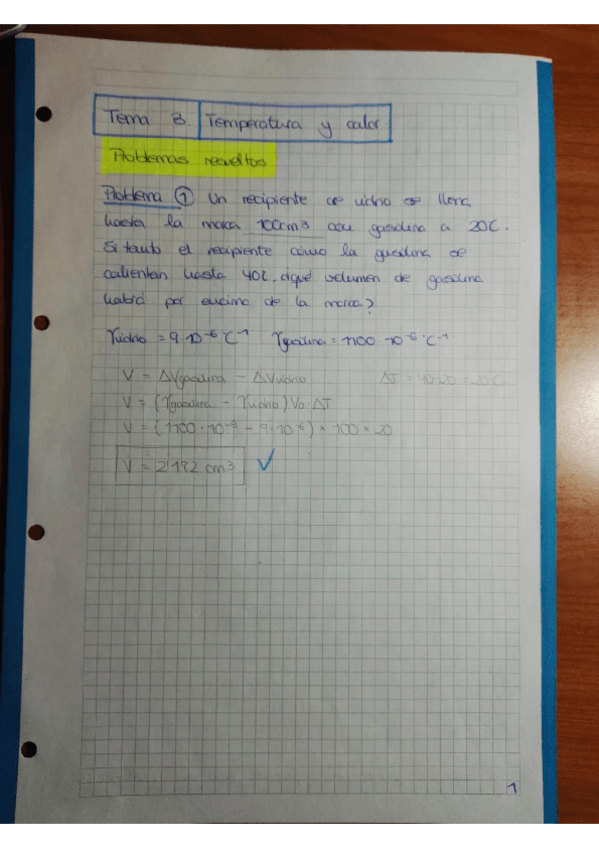 Tema 3 Temperatura y calor
Problemas resueltos
Problema 1 Un recipiente de vidrio se llena
hasta la marca 100cm3 con gasolina a 20C.
Si tanto el recipiente como la gasolina se
calientan hasta 40C, ¿qué volumen de gasolina
habrá por encima de la marca?
γvidrio = 9·10⁻⁶ C⁻¹ γgasolina = 1100·10⁻⁶ °C⁻¹
V = ΔVgasolina - ΔVvidrio ΔT = 40-20 = 20C
V = (γgasolina - γvidrio) V₀ ΔT
V = (1100·10⁻⁶ - 9·10⁻⁶) × 100 × 20
V = 2'182 cm3 ✓
1